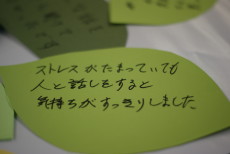 ストレスがたまっていても
人と話しをすると
気持ちがすっきりしました。